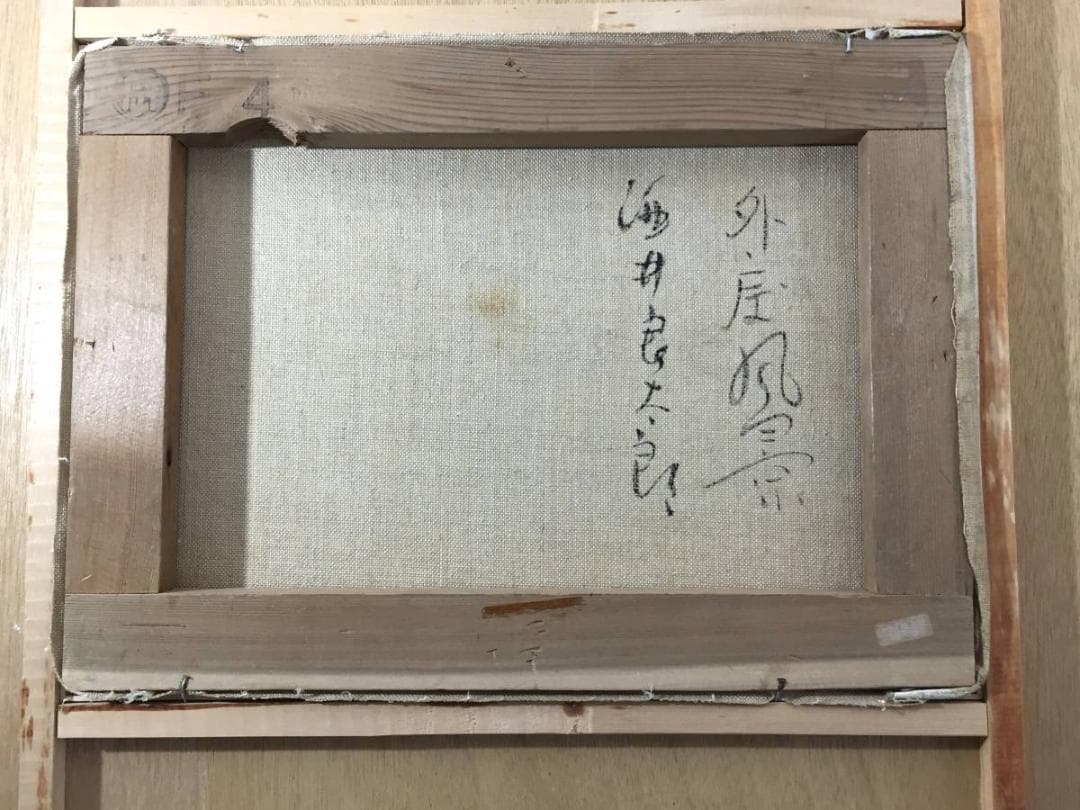 外房風景
酒井良太郎
F 4